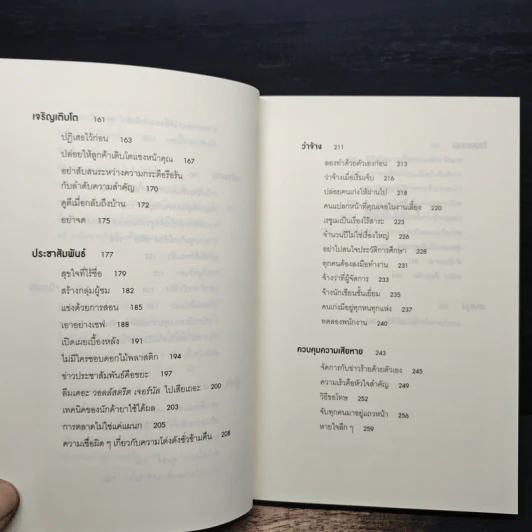 เจริญเติบโต 161
ปฏิเสธไว้ก่อน 163
ปล่อยให้ลูกค้าเติบโตแซงหน้าคุณ 167
อย่าสับสนระหว่างความกระตือรือร้น
กับลำดับความสำคัญ 170
ดูดีเมื่อกลับถึงบ้าน 172
อย่าจด 175
ประชาสัมพันธ์ 177
สุขใจที่ไร้ชื่อ 179
สร้างกลุ่มผู้ชม 182
แข่งด้วยการสอน 185
เอาอย่างเชฟ 188
เปิดเผยเบื้องหลัง 191
ไม่มีใครชอบดอกไม้พลาสติก 194
ข่าวประชาสัมพันธ์คือขยะ 197
ลืมเดอะ วอลล์สตรีต เจอร์นัล ไปเสียเถอะ 200
เทคนิคของนักค้ายาใช้ได้ผล 203
การตลาดไม่ใช่แค่แผนก 205
ความเชื่อผิด ๆ เกี่ยวกับความโด่งดังชั่วข้ามคืน 208
ว่าจ้าง 211
ลองทำด้วยตัวเองก่อน 213
ว่าจ้างเมื่อเริ่มเจ็บ 216
ปล่อยคนเก่งให้ผ่านไป 218
คนแปลกหน้าที่คุณเจอในงานเลี้ยง 220
เรซูเม่เป็นเรื่องไร้สาระ 223
จำนวนปีไม่ใช่เรื่องใหญ่ 226
อย่าไปสนใจประวัติการศึกษา 228
ทุกคนต้องลงมือทำงาน 231
จ้างว่าที่ผู้จัดการ 233
จ้างนักเขียนชั้นเยี่ยม 235
คนเก่งมีอยู่ทุกหนทุกแห่ง 237
ทดลองพนักงาน 240
ควบคุมความเสียหาย 243
จัดการกับข่าวร้ายด้วยตัวเอง 245
ความเร็วคือหัวใจสำคัญ 249
วิธีขอโทษ 252
จับทุกคนมาอยู่แถวหน้า 256
หายใจลึก ๆ 259